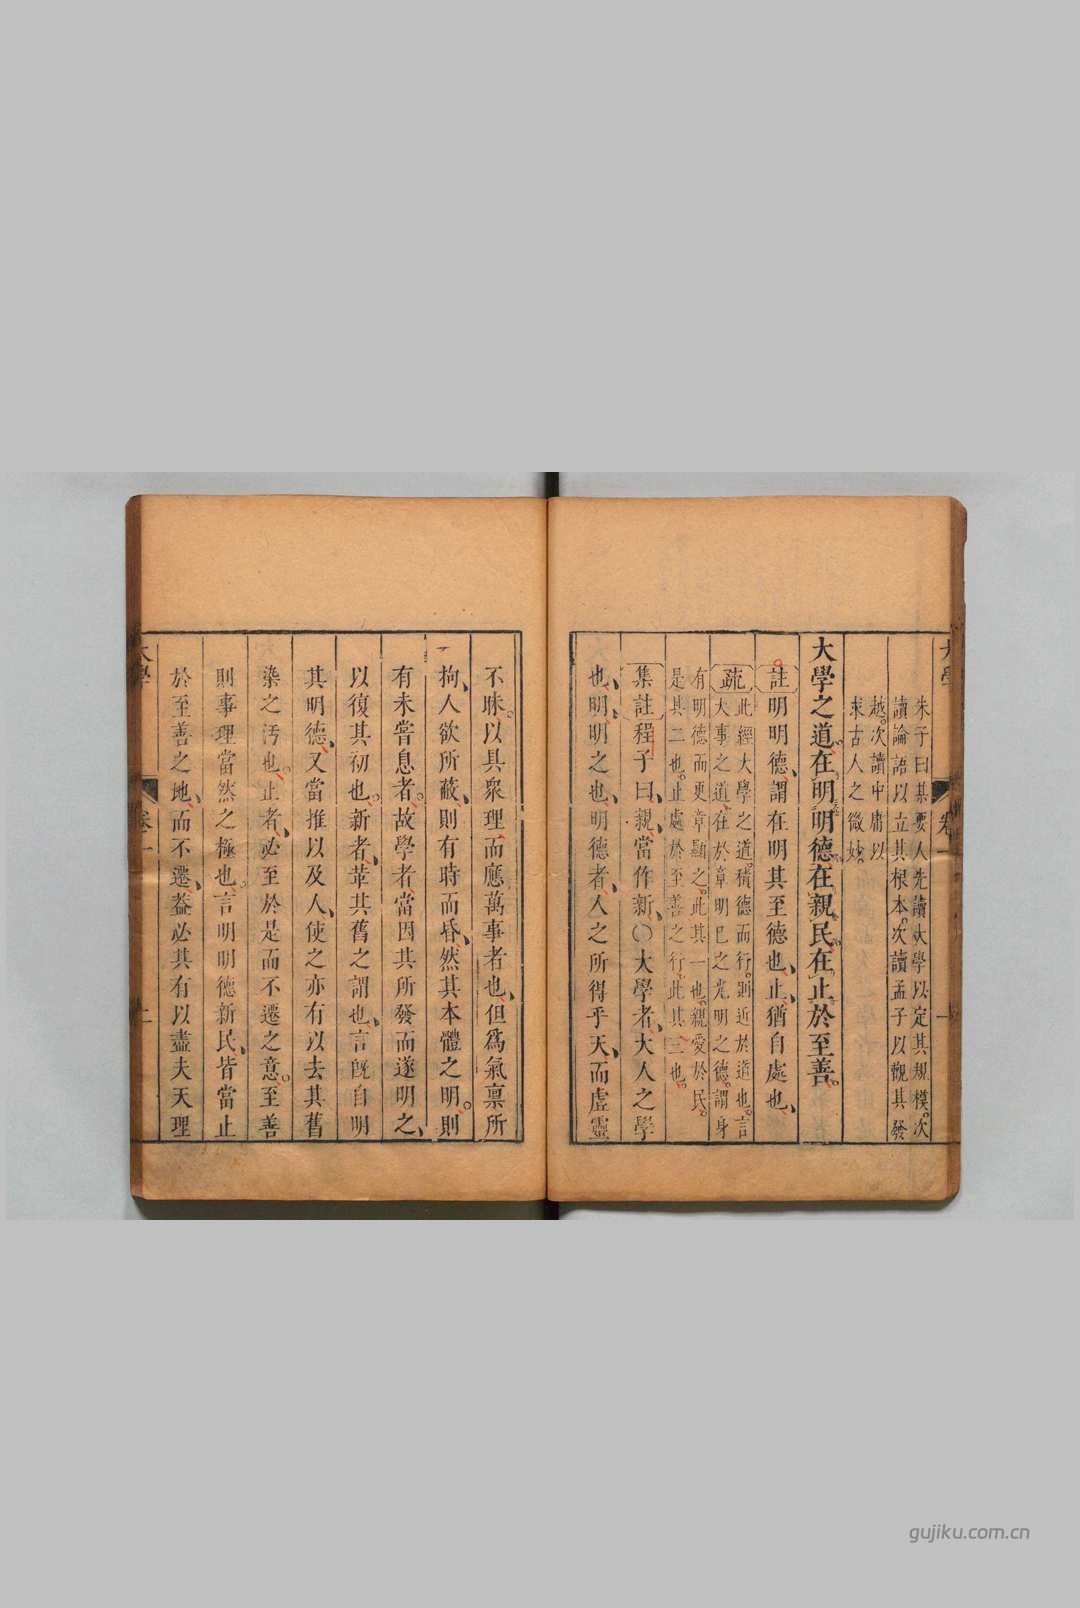 朱子曰某要人先讀大學以定其規模次
讀論語以立其根本次讀孟子以觀其發
越次讀中庸以
求古人之微妙
大學之道在明明德在親民在止於至善
註明明德謂在明其至德也止猶自處也
疏此經大學之道積德而行則近於道也言
大學之道在於章明已之光明之德謂身
有明德而更章顯之此其一也親愛於民
是其二也止處於至善之行此其三也
集註程子曰親當作新〇大學者大人之學
也明明之也明德者人之所得乎天而虛靈
大學 卷一 一
不昧以具眾理而應萬事者也但爲氣稟所
拘人欲所蔽則有時而昏然其本體之明則
有未嘗息者故學者當因其所發而遂明之
以復其初也新者革其舊之謂也言旣自明
其明德又當推以及人使之亦有以去其舊
染之汚也止者必至於是而不遷之意至善
則事理當然之極也言明明德新民皆當止
於至善之地而不遷葢必其有以盡夫天理
大學 卷一 二
gujiku.com.cn